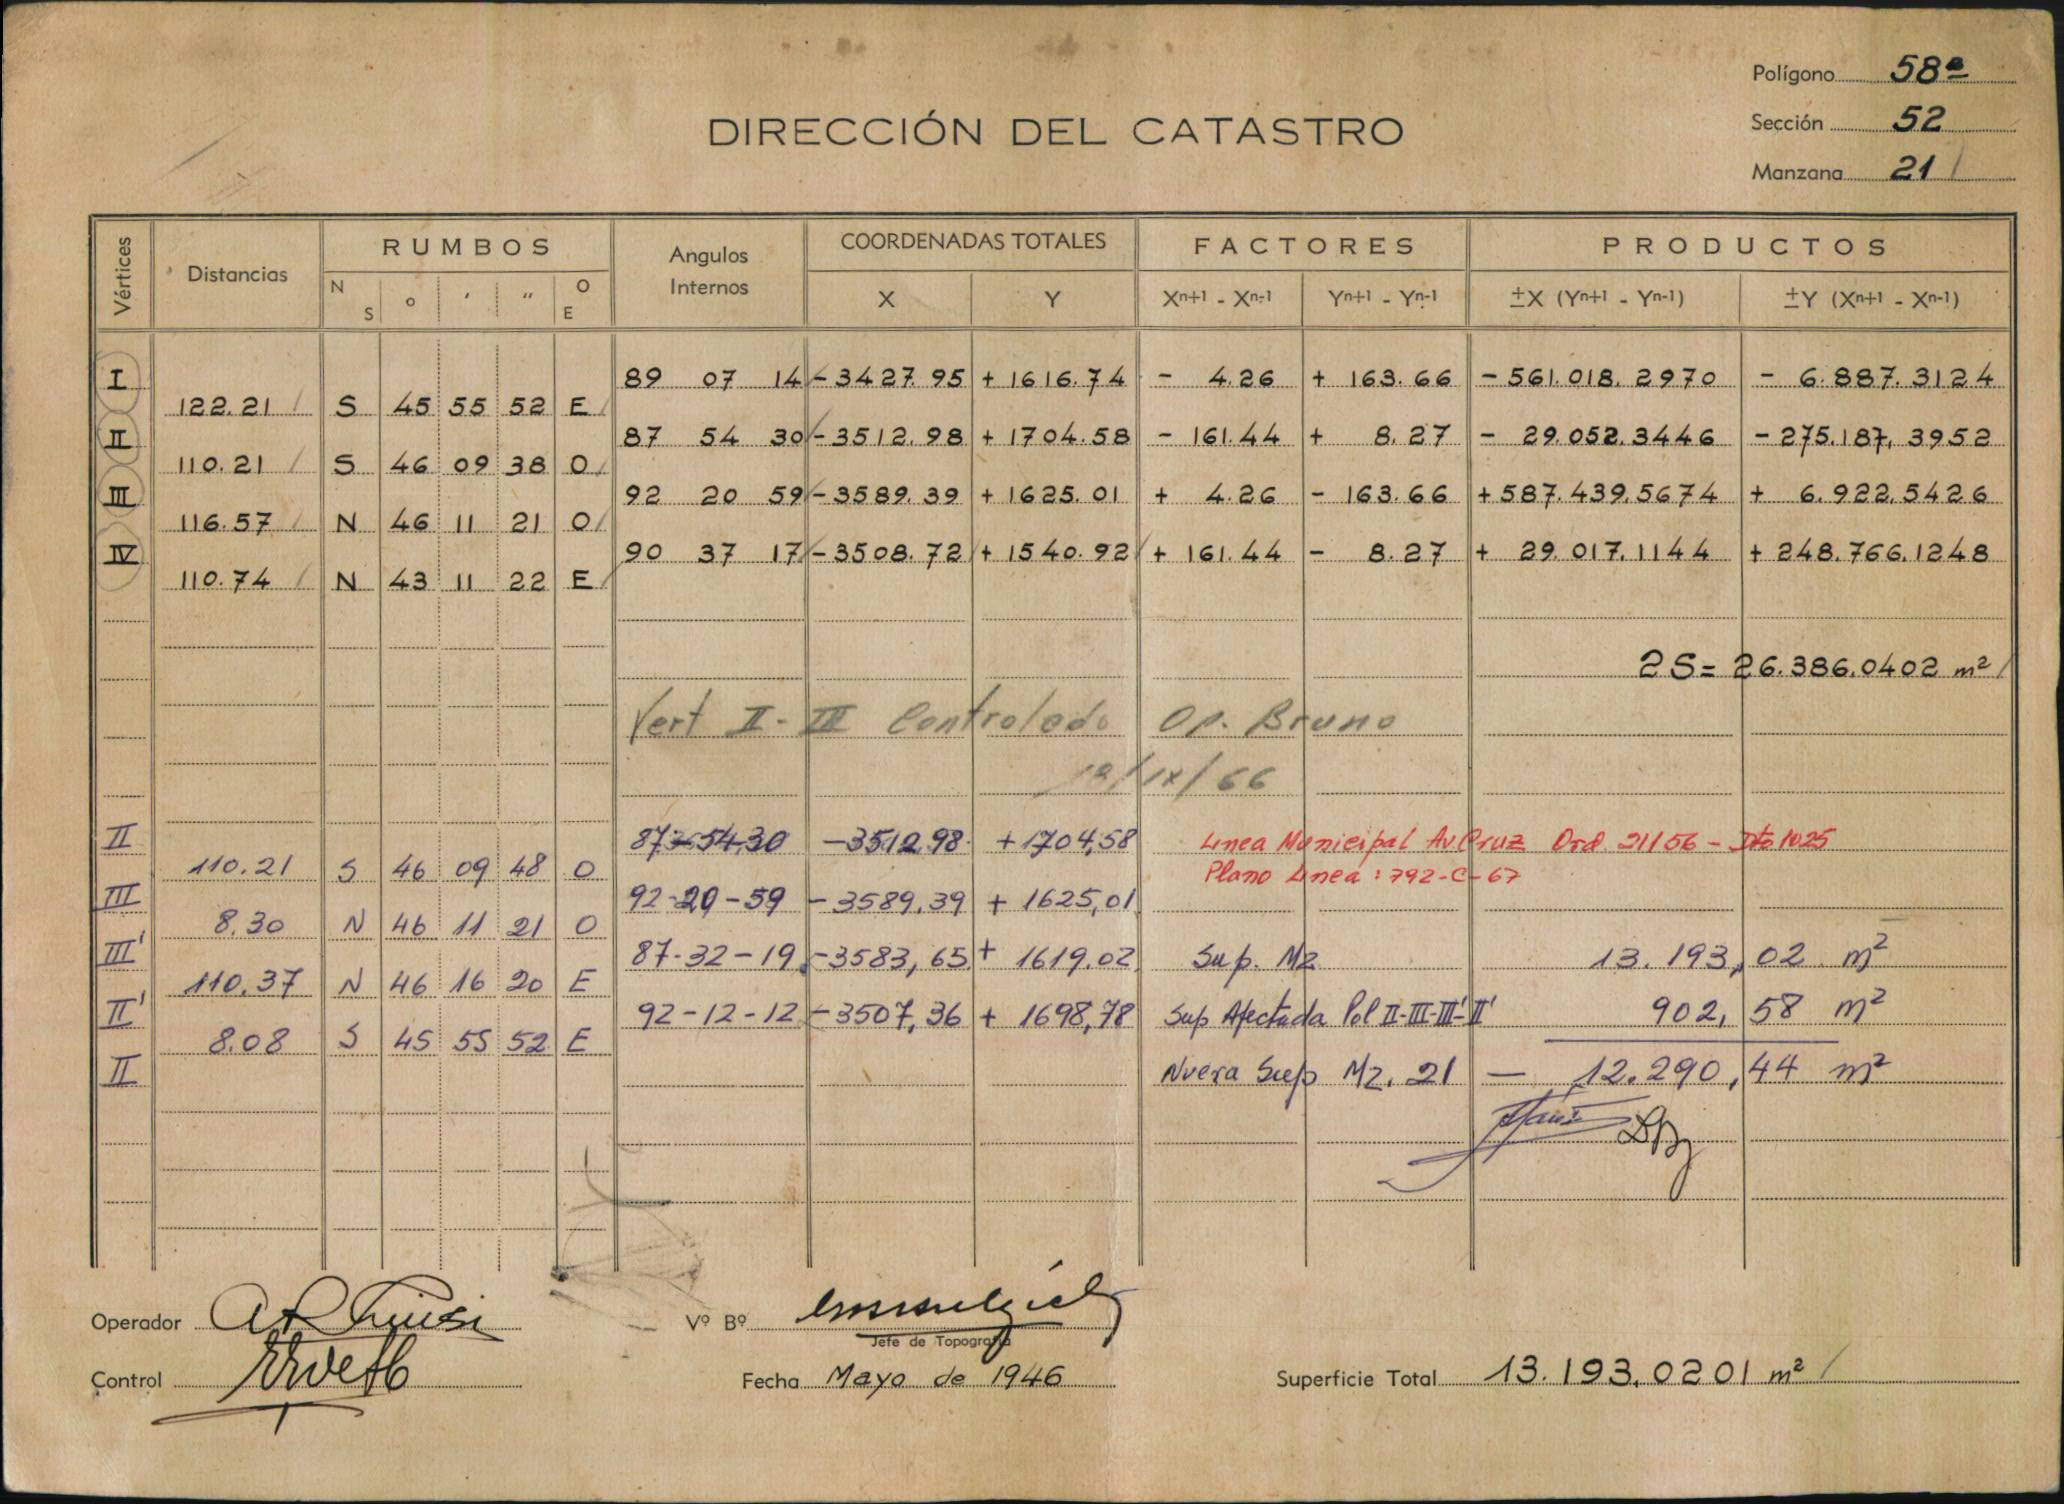 Polígono 58ª
DIRECCIÓN DEL CATASTRO
Sección 52
Manzana 21
Vértices Distancias RUMBOS Angulos Internos COORDENADAS TOTALES FACTORES PRODUCTOS
N S o ' " O E X Y Xⁿ⁺¹ - Xⁿ⁻¹ Yⁿ⁺¹ - Yⁿ⁻¹ ±X (Yⁿ⁺¹ - Yⁿ⁻¹) ±Y (Xⁿ⁺¹ - Xⁿ⁻¹)
I 89 07 14 - 3427.95 + 1616.74 - 4.26 + 163.66 - 561.018.2970 - 6.887.3124
122.21 S 45 55 52 E
II 87 54 30 - 3512.98 + 1704.58 - 161.44 + 8.27 - 29.052.3446 - 275.187,3952
110.21 S 46 09 38 O
III 92 20 59 - 3589.39 + 1625.01 + 4.26 - 163.66 + 587.439.5674 + 6.922.5426
116.57 N 46 11 21 O
IV 90 37 17 - 3508.72 + 1540.92 + 161.44 - 8.27 + 29.017.1144 + 248.766.1248
110.74 N 43 11 22 E
2S = 26.386.0402 m²
Vert II - III Controlado Op. Bruno
12/IX/66
II 87-54-30 -3512.98 +1704,58 Linea Municipal Av Cruz Ord. 21156 - Dto 1025
110.21 S 46 09 48 O Plano Linea: 792-C-67
III 92-20-59 -3589,39 + 1625,01
8.30 N 46 11 21 O
III' 87-32-19 -3583,65 + 1619.02 Sup. Mz 13.193,02 m²
110.37 N 46 16 20 E
II' 92-12-12 -3507,36 + 1698,78 Sup Afectada Pol II-III-III'-II' 902,58 m²
8.08 S 45 55 52 E
II Nueva Sup Mz. 21 — 12.290,44 m²
Operador
Vº Bº
Jefe de Topografía
Control
Fecha Mayo de 1946
Superficie Total 13.193.0201 m²